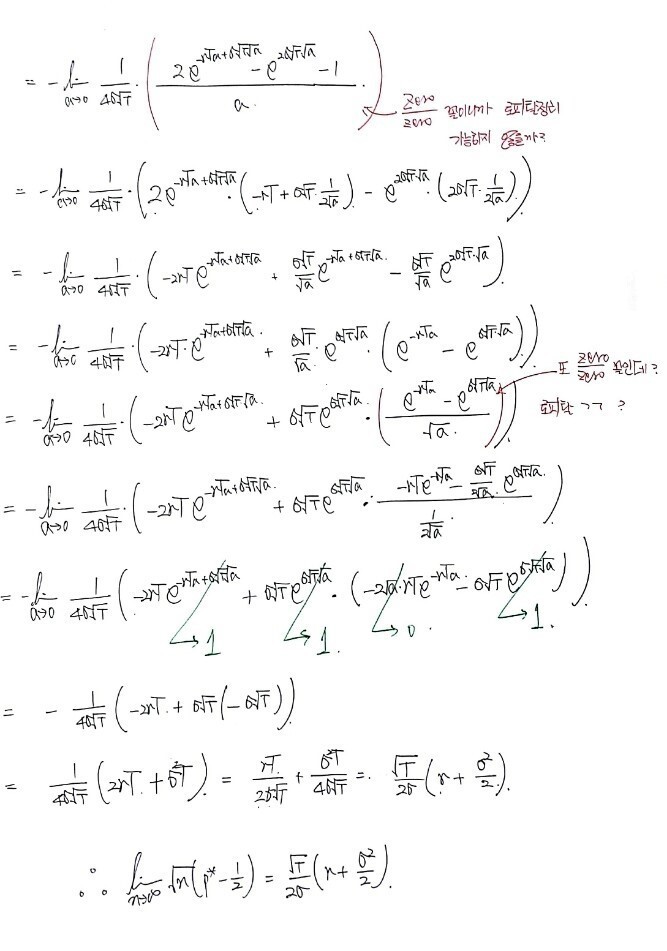 = -lim_{a→0} 1/(4σ√T) · ( (2e^{-rTa+σ√T√a} - e^{2σ√T√a} - 1)/a )
zero/zero 꼴이니까 로피탈정리
가능하지 않을까?
= -lim_{a→0} 1/(4σ√T) · ( 2e^{-rTa+σ√T√a} · (-rT + σ√T · 1/(2√a)) - e^{2σ√T√a} · (2σ√T · 1/(2√a)) )
= -lim_{a→0} 1/(4σ√T) · ( -2rTe^{-rTa+σ√T√a} + (σ√T/√a) e^{-rTa+σ√T√a} - (σ√T/√a) e^{2σ√T·√a} )
= -lim_{a→0} 1/(4σ√T) · ( -2rT·e^{-rTa+σ√T√a} + (σ√T/√a) · e^{σ√T√a} · (e^{-rTa} - e^{σ√T√a}) )
또 zero/zero 꼴인데?
= -lim_{a→0} 1/(4σ√T) · ( -2rTe^{-rTa+σ√T√a} + σ√Te^{σ√T√a} · ( (e^{-rTa} - e^{σ√T√a})/√a ) )
로피탈 ㄱㄱ ?
= -lim_{a→0} 1/(4σ√T) · ( -2rTe^{-rTa+σ√T√a} + σ√Te^{σ√T√a} · (-rTe^{-rTa} - (σ√T/(2√a)) e^{σ√T√a})/(1/(2√a)) )
= -lim_{a→0} 1/(4σ√T) ( -2rTe^{-rTa+σ√T√a} + σ√Te^{σ√T√a} · (-2√a·rTe^{-rTa} - σ√Te^{σ√T√a}) )
→1 →1. →0. →1.
= - 1/(4σ√T) (-2rT + σ√T(-σ√T))
= 1/(4σ√T) (2rT + σ²T) = rT/(2σ√T) + σ²T/(4σ√T) = √T/(2σ) (r + σ²/2).
∴ lim_{n→∞} √n(p* - 1/2) = √T/(2σ) (r + σ²/2).